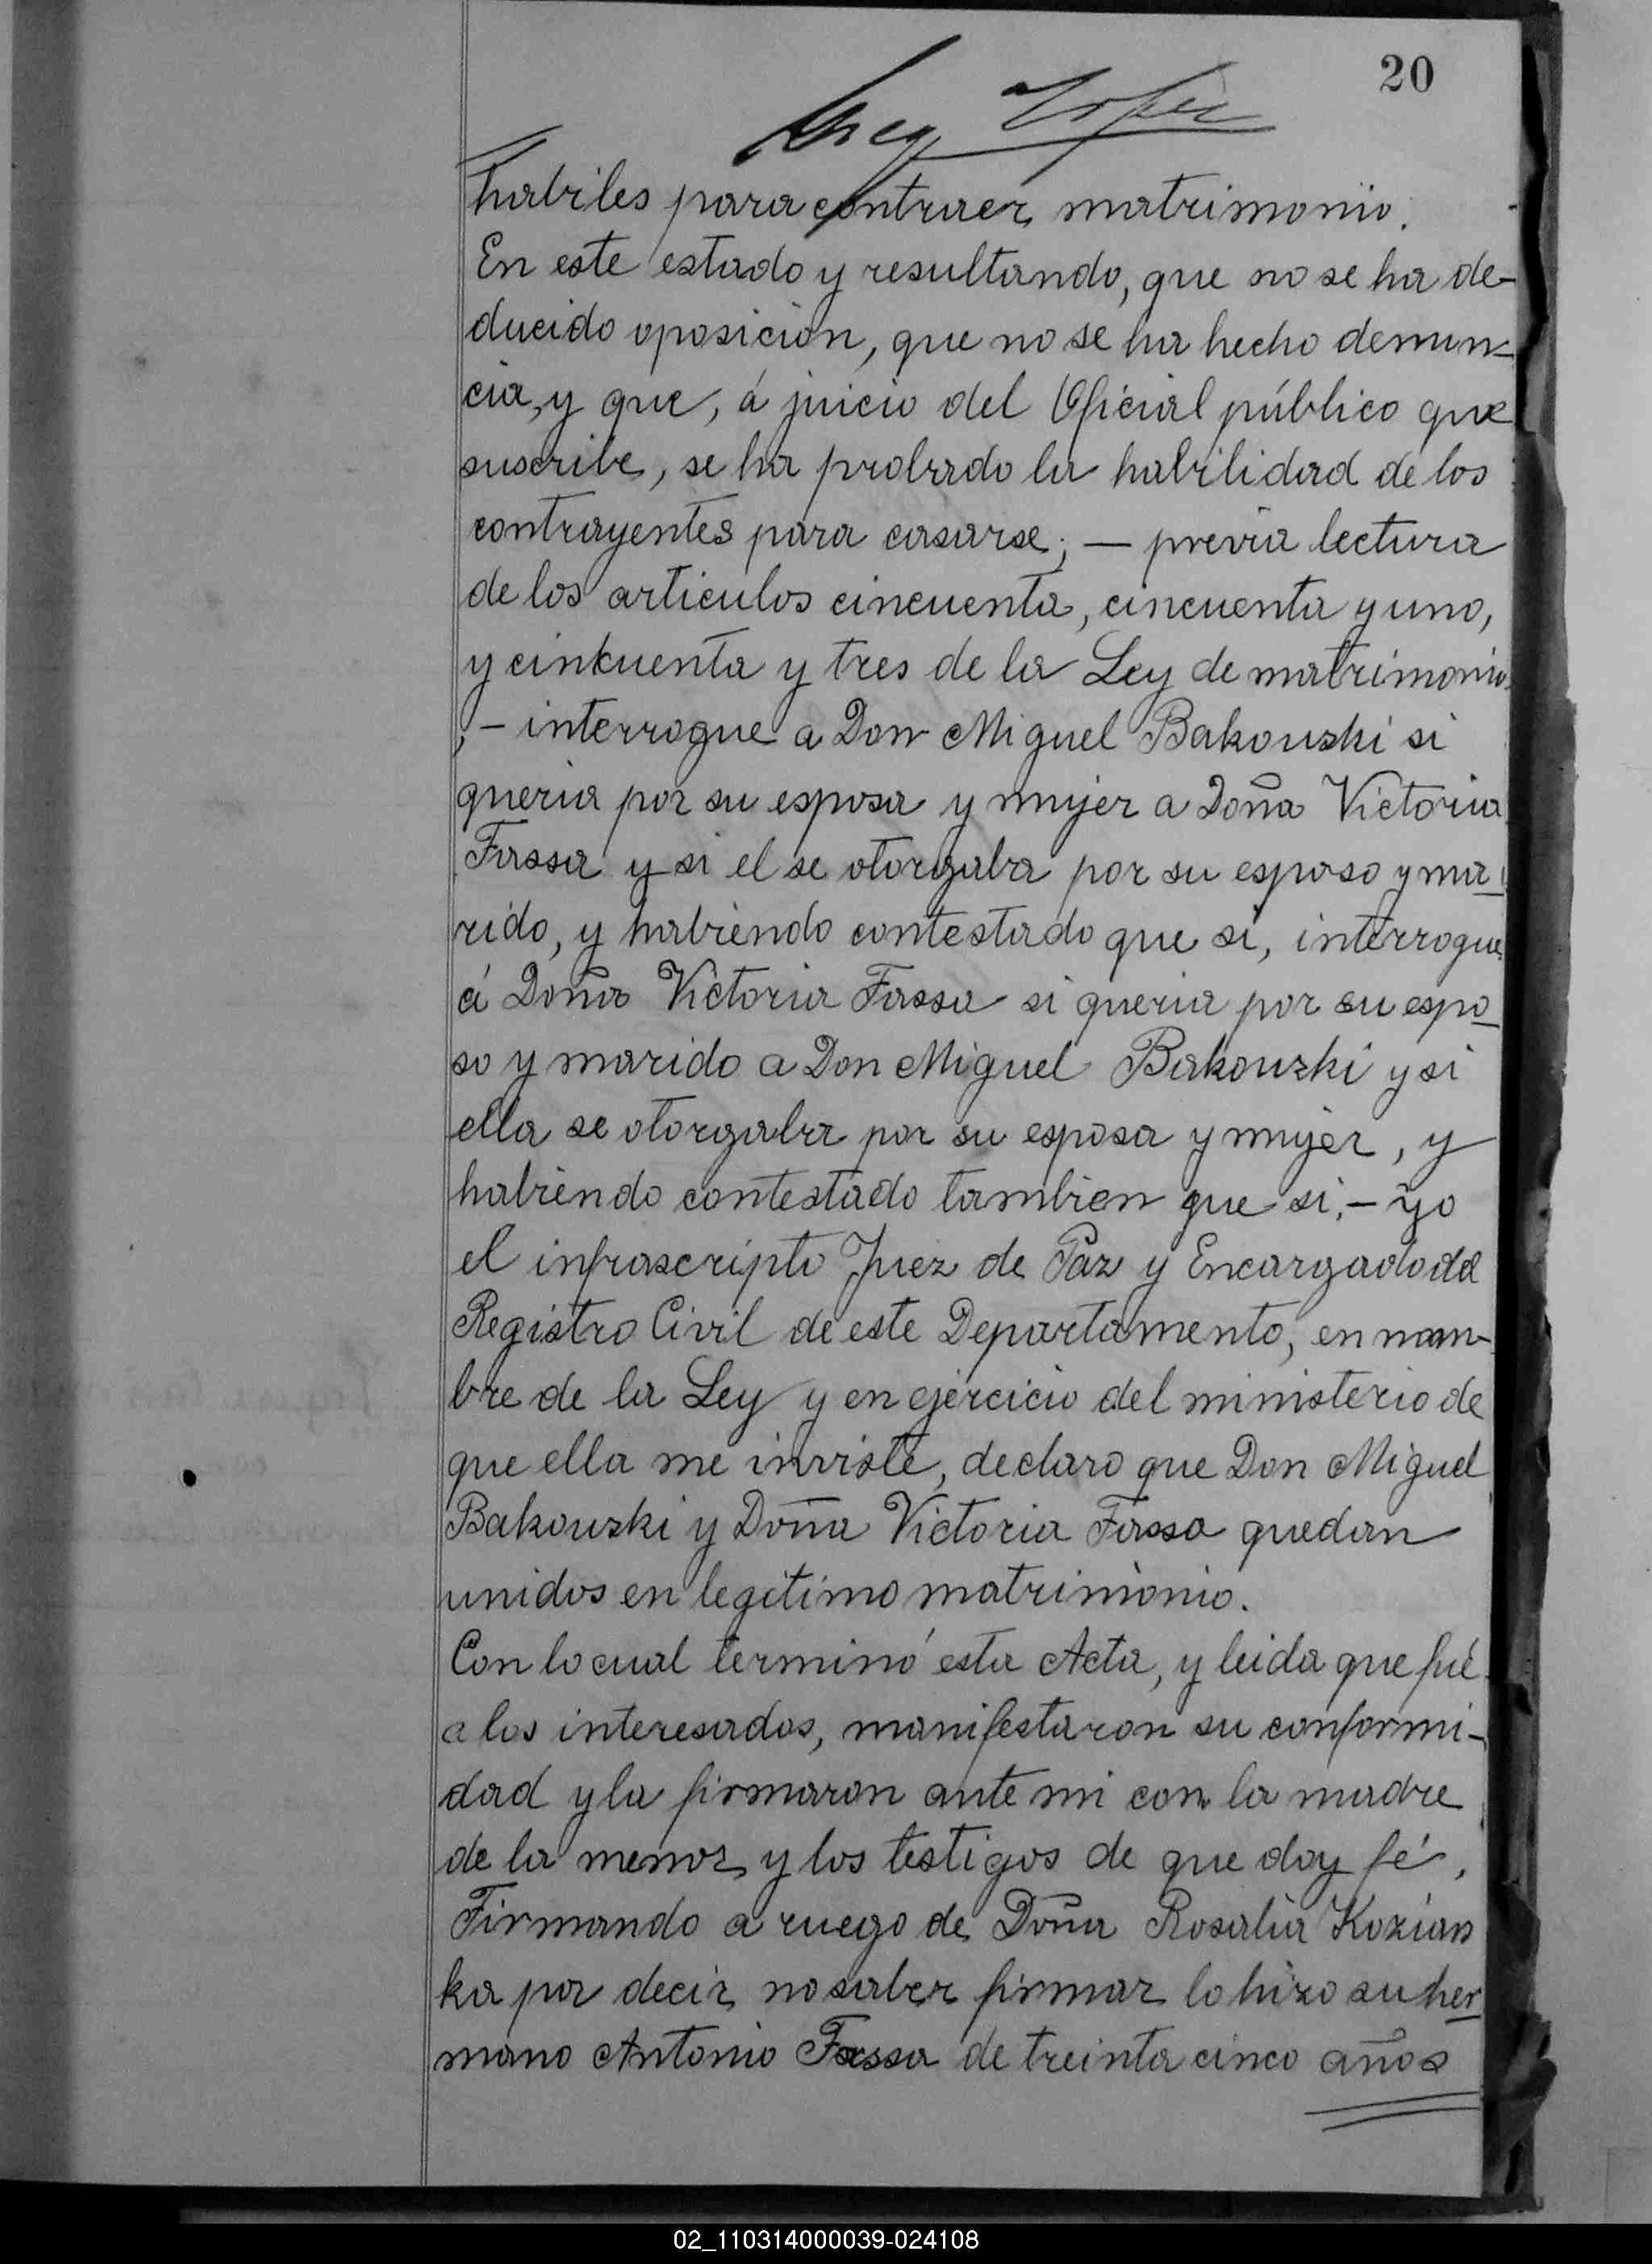 20
habiles para contraer matrimonio.
En este estado y resultando, que no se ha de-
ducido oposicion, que no se ha hecho denun-
cia, y que, á juicio del Oficial público que
suscribe, se ha probado la habilidad de los
contrayentes para casarse; — previa lectura
de los articulos cincuenta, cincuenta y uno,
y cinkuenta y tres de la Ley de matrimonio
, – interrogue a Don Miguel Bakouzki si
queria por su esposa y mujer a Doña Victoria
Fassa y si el se otorgaba por su esposo y ma
rido, y habiendo contestado que si, interrogue
á Doña Victoria Fassa si queria por su espo
so y marido a Don Miguel Bakouzki y si
ella se otorgaba por su esposa y mujer, y
habiendo contestado tambien que si, – yo
el infrascripto Juez de Paz y Encargado del
Registro Civil de este Departamento, en nom-
bre de la Ley y en ejercicio del ministerio de
que ella me inviste, declaro que Don Miguel
Bakouzki y Doña Victoria Fassa quedan
unidos en legitimo matrimonio.
Con lo cual terminó esta Acta, y leida que fué
a los interesados, manifestaron su conformi-
dad y la firmaron ante mi con la madre
de la menor y los testigos de que doy fé,
Firmando a ruego de Doña Rosalia Kozian
ka por decir no saber firmar lo hizo su her
mano Antonio Fassa de treinta cinco años
02_110314000039-024108